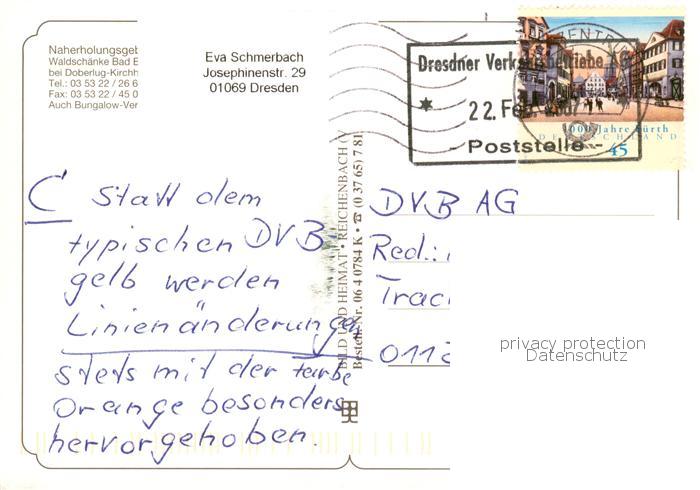 Naherholungsgeb
Waldschänke Bad E
bei Doberlug-Kirchh
Tel.: 03 53 22 / 26 6
Fax: 03 53 22 / 45 0
Auch Bungalow-Ver
Eva Schmerbach
Josephinenstr. 29
01069 Dresden
Dresdner Verkehrsbetriebe AG
22. Feb. 2007
- Poststelle -
1000 Jahre Fürth
DEUTSCHLAND
45
C Statt dem
typischen DVB-
gelb werden
Linienänderungen
stets mit der Farbe
Orange besonders
hervorgehoben.
BILD UND HEIMAT • REICHENBACH (V
Bestell.-Nr. 06 4 0784 K • ☎ (0 37 65) 7 81
DVB AG
Red.:
Trac
011
privacy protection
Datenschutz